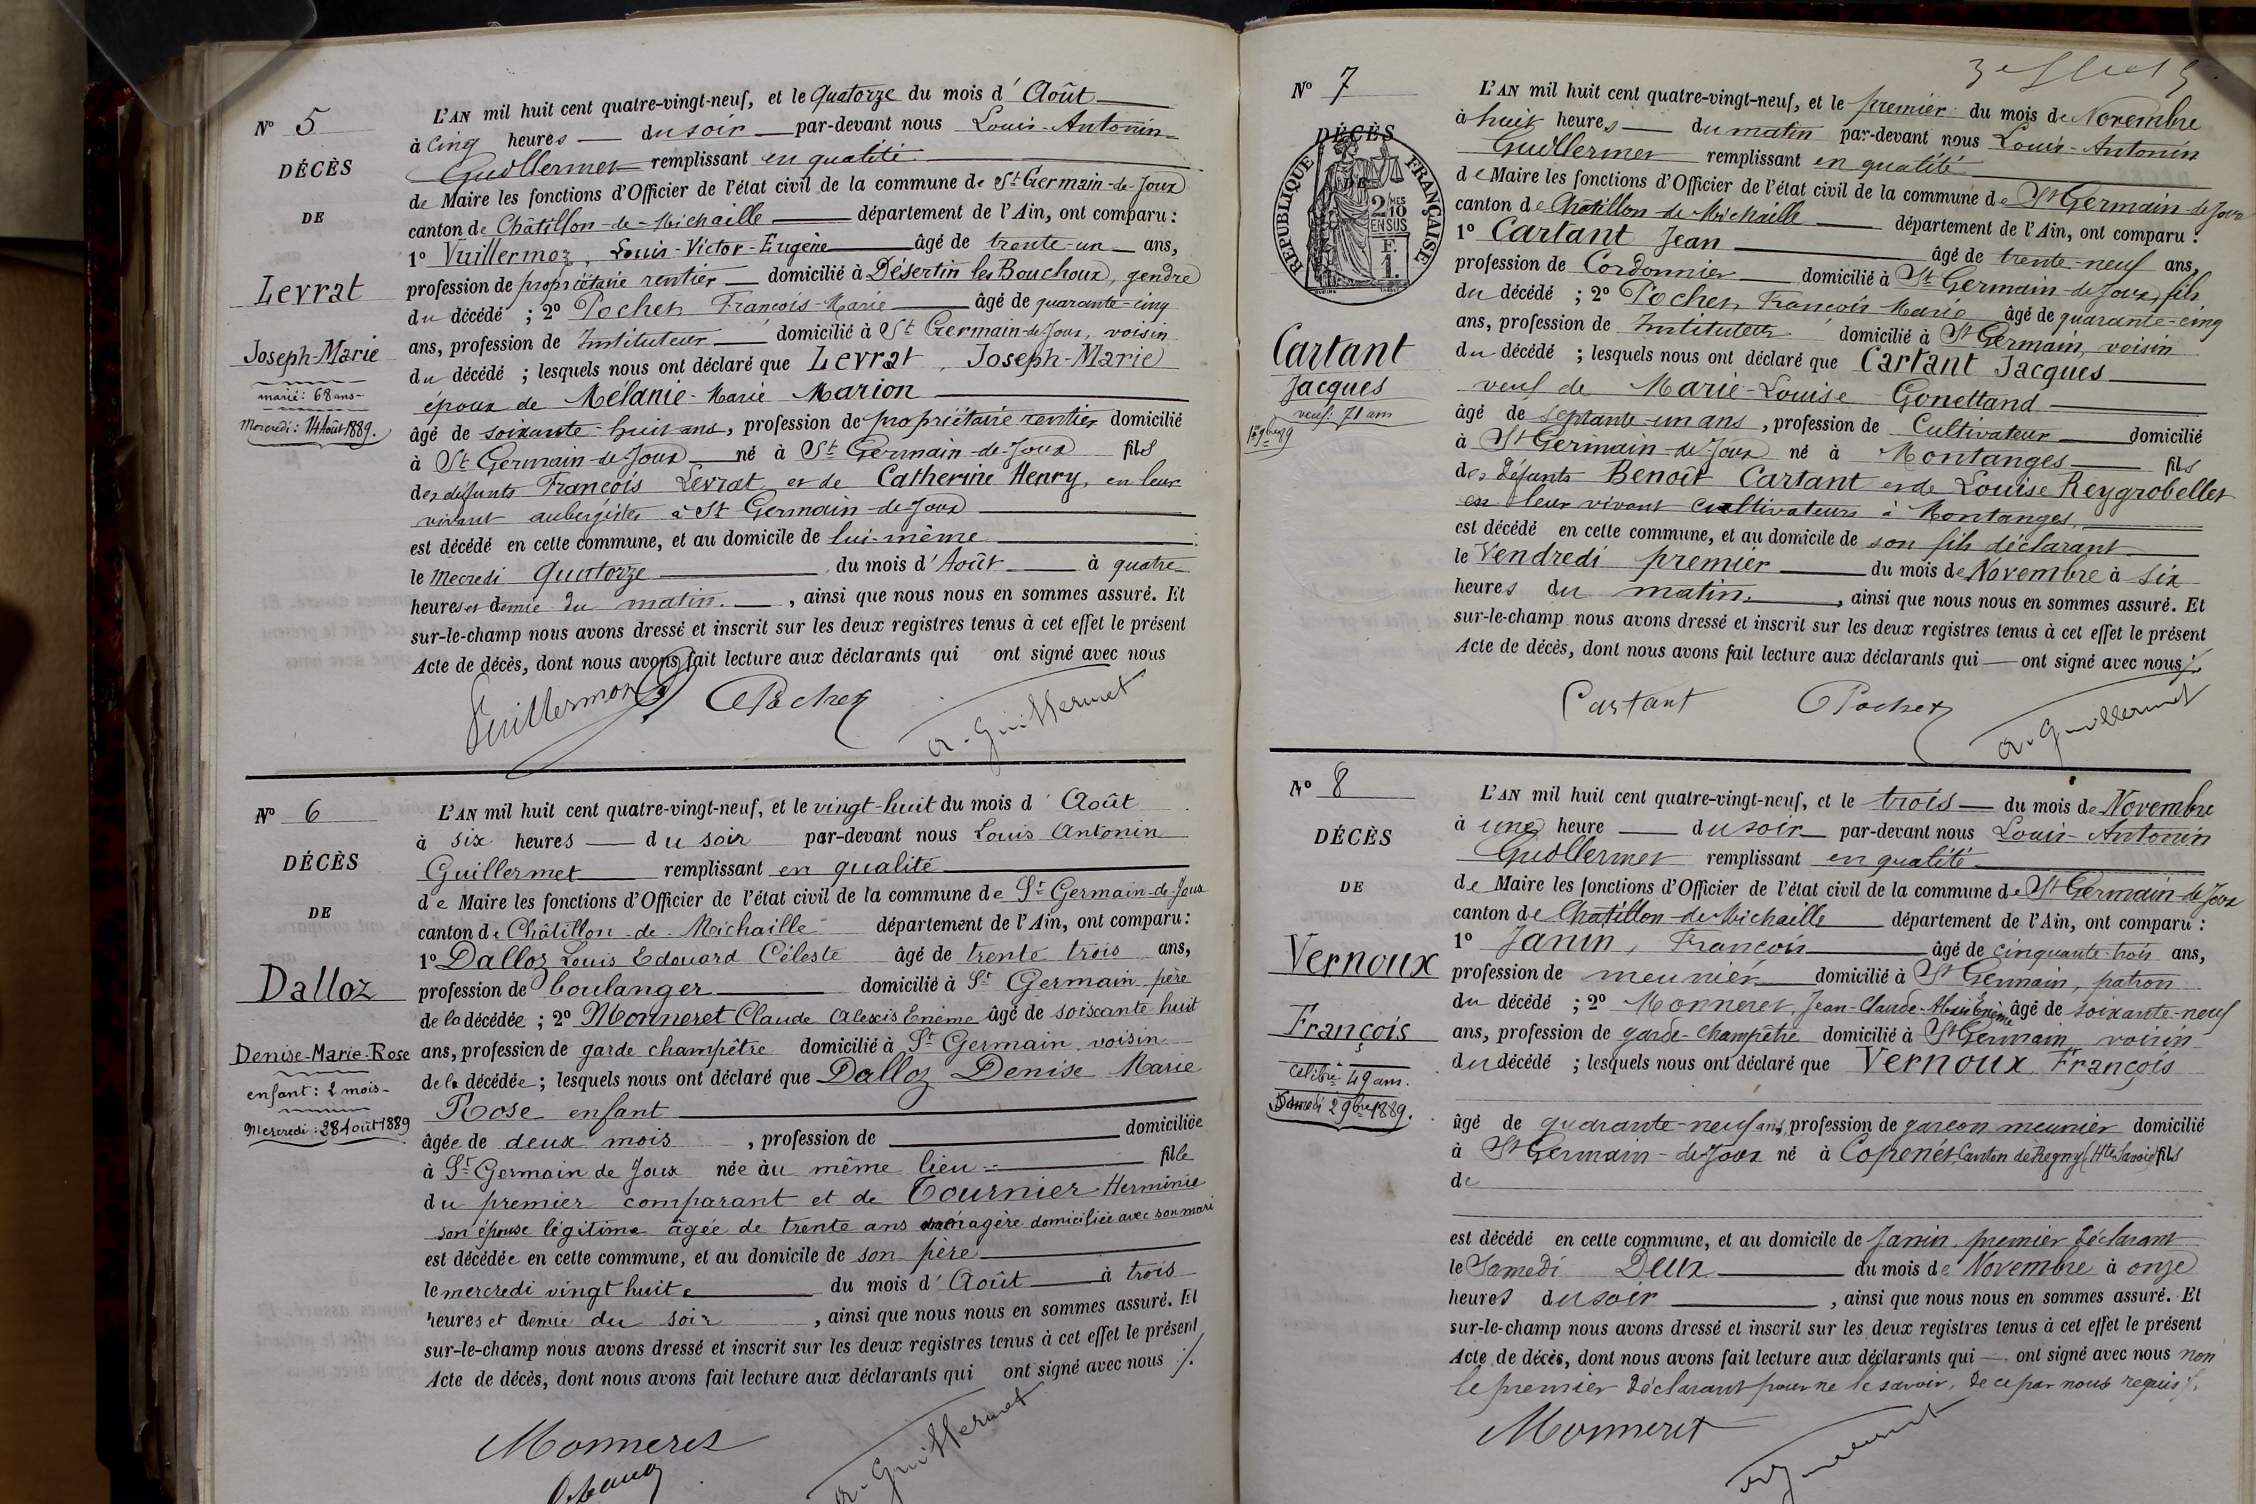 N° 5
DÉCÈS
DE
Levrat
Joseph-Marie
marié: 68 ans-
Mercredi: 14 Août 1889.
L'AN mil huit cent quatre-vingt-neuf, et le Quatorze du mois d'Août
à cinq heures du soir par-devant nous Louis-Antonin
Guillermet remplissant en qualité
de Maire les fonctions d'Officier de l'état civil de la commune de St Germain-de-Joux
canton de Châtillon-de-Michaille département de l'Ain, ont comparu:
1° Vuillermoz, Louis-Victor-Eugène âgé de trente-un ans,
profession de propriétaire rentier domicilié à Désertin les Bouchoux, gendre
du décédé ; 2° Pochet François-Marie âgé de quarante-cinq
ans, profession de Instituteur domicilié à St Germain-de-Joux, voisin
du décédé ; lesquels nous ont déclaré que Levrat, Joseph-Marie
époux de Mélanie-Marie Marion
âgé de soixante-huit ans, profession de propriétaire rentier domicilié
à St Germain-de-Joux né à St Germain-de-Joux fils
des défunts François Levrat et de Catherine Henry, en leur
vivant aubergistes à St Germain-de-Joux
est décédé en cette commune, et au domicile de lui-même
le Mecredi Quatorze du mois d'Août à quatre
heures et demie du matin. , ainsi que nous nous en sommes assuré. Et
sur-le-champ nous avons dressé et inscrit sur les deux registres tenus à cet effet le présent
Acte de décès, dont nous avons fait lecture aux déclarants qui ont signé avec nous
Vuillermoz Pochet A. Guillermet
N° 6
DÉCÈS
DE
Dalloz
Denise-Marie-Rose
enfant: 2 mois-
Mercredi: 28 Août 1889
L'AN mil huit cent quatre-vingt-neuf, et le vingt-huit du mois d'Août
à six heures du soir par-devant nous Louis Antonin
Guillermet remplissant en qualité
de Maire les fonctions d'Officier de l'état civil de la commune de St Germain-de-Joux
canton de Châtillon-de-Michaille département de l'Ain, ont comparu:
1° Dalloz Louis Edouard Céleste âgé de trente trois ans,
profession de boulanger domicilié à St Germain père
de la décédée ; 2° Monneret Claude Alexis Enème âgé de soiscante huit
ans, profession de garde champêtre domicilié à St Germain voisin
de la décédée ; lesquels nous ont déclaré que Dalloz Denise Marie
Rose enfant
âgée de deux mois , profession de domiciliée
à St Germain de Joux née àu même lieu fille
du premier comparant et de Tournier Herminie
son épouse légitime âgée de trente ans ménagère domiciliée avec son mari
est décédée en cette commune, et au domicile de son père
le mercredi vingt huit du mois d'Août à trois
heures et demie du soir , ainsi que nous nous en sommes assuré. Et
sur-le-champ nous avons dressé et inscrit sur les deux registres tenus à cet effet le présent
Acte de décès, dont nous avons fait lecture aux déclarants qui ont signé avec nous ./.
Monneret A. Guillermet
N° 7
DÉCÈS
DE
RÉPUBLIQUE FRANÇAISE
2/10MES
EN SUS
F.
1.
Cartant
Jacques
veuf: 71 ans
1er 9bre 89
L'AN mil huit cent quatre-vingt-neuf, et le premier du mois de Novembre
à huit heures du matin par-devant nous Louis-Antonin
Guillermet remplissant en qualité
de Maire les fonctions d'Officier de l'état civil de la commune de St Germain-de-Joux
canton de Châtillon-de-Michaille département de l'Ain, ont comparu :
1° Cartant Jean âgé de trente-neuf ans,
profession de Cordonnier domicilié à St Germain-de-Joux, fils
du décédé ; 2° Pochet, François-Marie âgé de quarante-cinq
ans, profession de Instituteur domicilié à St Germain, voisin
du décédé ; lesquels nous ont déclaré que Cartant Jacques
veuf de Marie-Louise Gonettand
âgé de septante-un ans , profession de Cultivateur domicilié
à St Germain-de-Joux né à Montanges fils
des défunts Benoît Cartant et de Louise Reygrobellet
en leur vivant cultivateurs à Montanges.
est décédé en cette commune, et au domicile de son fils déclarant
le Vendredi premier du mois de Novembre à six
heures du matin. , ainsi que nous nous en sommes assuré. Et
sur-le-champ nous avons dressé et inscrit sur les deux registres tenus à cet effet le présent
Acte de décès, dont nous avons fait lecture aux déclarants qui ont signé avec nous ./.
Cartant Pochet A. Guillermet
N° 8
DÉCÈS
DE
Vernoux
François
Célibre 49 ans.
Samedi 2 9bre 1889.
L'AN mil huit cent quatre-vingt-neuf, et le trois du mois de Novembre
à une heure du soir par-devant nous Louis-Antonin
Guillermet remplissant en qualité
de Maire les fonctions d'Officier de l'état civil de la commune de St Germain-de-Joux
canton de Châtillon-de-Michaille département de l'Ain, ont comparu :
1° Janin, François âgé de cinquante-trois ans,
profession de meunier domicilié à St Germain, patron
du décédé ; 2° Monneret, Jean-Claude-Alexis Enème âgé de soixante-neuf
ans, profession de garde-champêtre domicilié à St Germain voisin
du décédé ; lesquels nous ont déclaré que Vernoux François
âgé de quarante-neuf ans, profession de garçon meunier domicilié
à St Germain-de-Joux né à Coponet, Canton de Regny (Hte Savoie) fils
de
est décédé en cette commune, et au domicile de Janin, premier déclarant
le Samedi Deux du mois de Novembre à onze
heures du soir , ainsi que nous nous en sommes assuré. Et
sur-le-champ nous avons dressé et inscrit sur les deux registres tenus à cet effet le présent
Acte de décès, dont nous avons fait lecture aux déclarants qui ont signé avec nous non
le premier déclarant pour ne le savoir, de ce par nous requis ./.
Monneret A. Guillermet